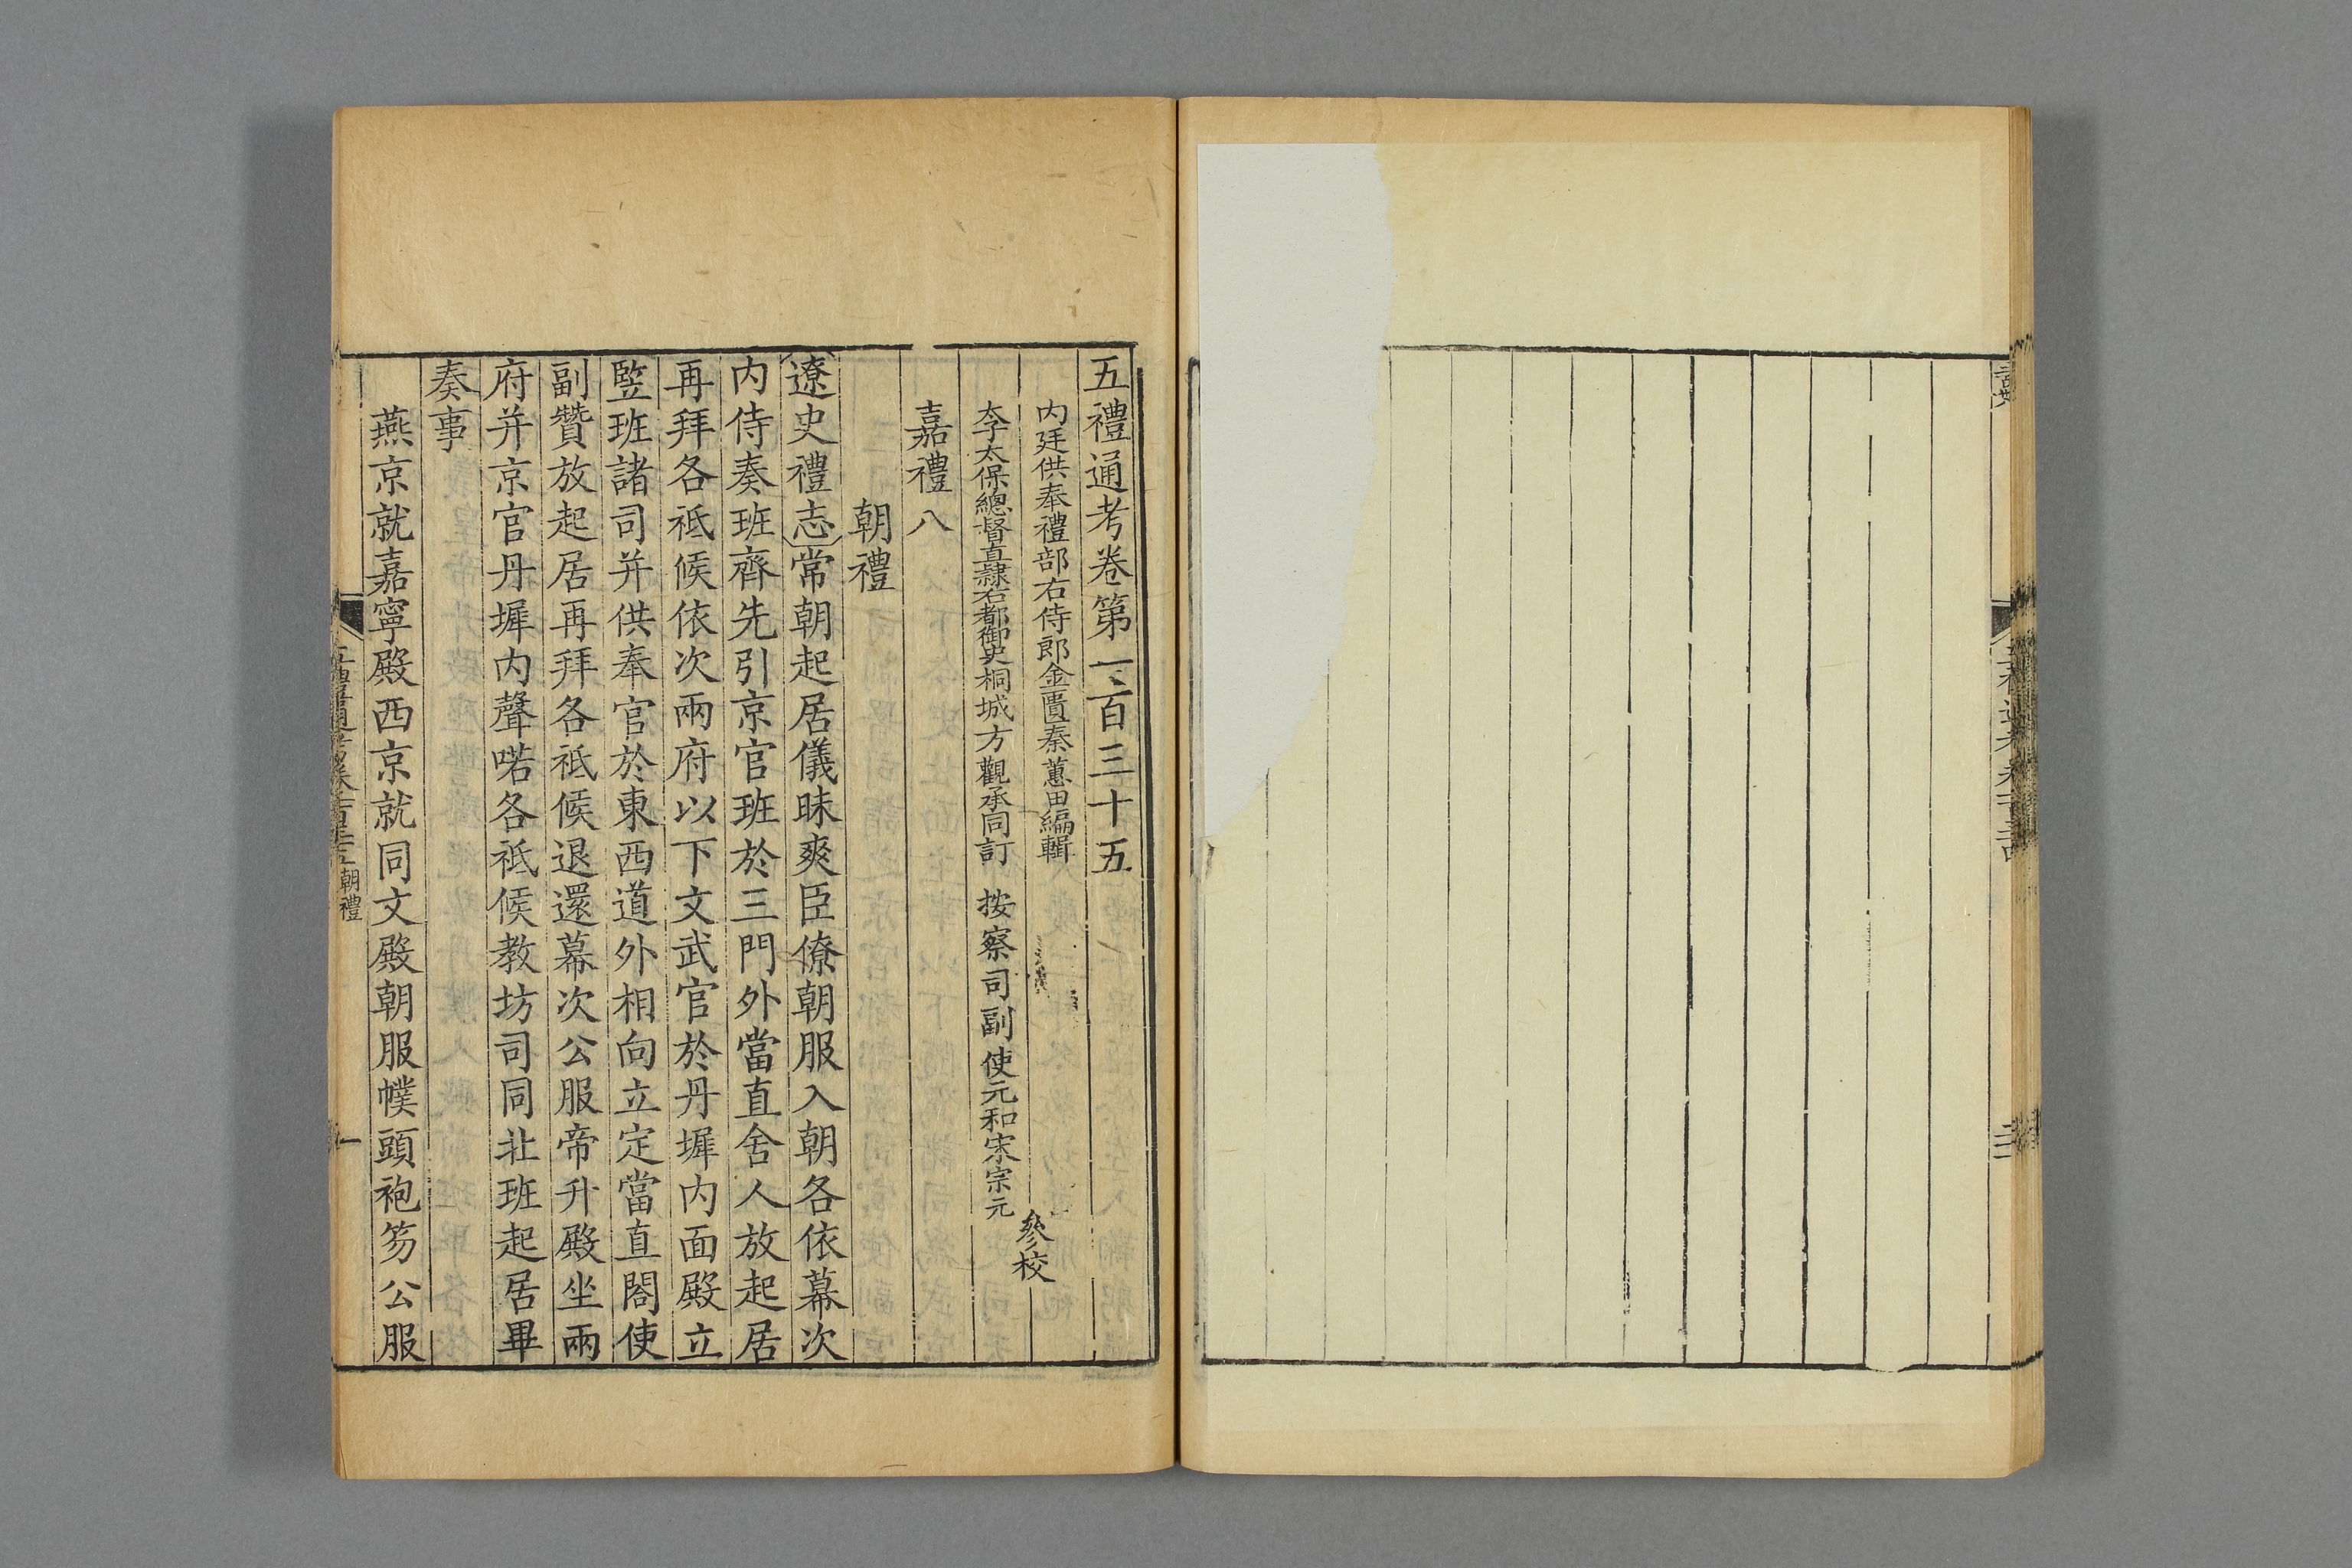 五禮通考卷第一百三十五
内廷供奉禮部右侍郎金匱秦蕙田編輯
太子太保總督直隸右都御史桐城方觀承同訂　按察司副使元和宋宗元
參校
嘉禮八
朝禮
遼史禮志常朝起居儀昧爽臣僚朝服入朝各依幕次
内侍奏班齊先引京官班於三門外當直舍人放起居
再拜各祗候依次兩府以下文武官於丹墀内面殿立
竪班諸司并供奉官於東西道外相向立定當直閤使
副贊放起居再拜各祗候退還幕次公服帝升殿坐兩
府并京官丹墀内聲喏各祗候教坊司同北班起居畢
奏事
燕京就嘉寧殿西京就同文殿朝服幞頭袍笏公服
朝禮
一